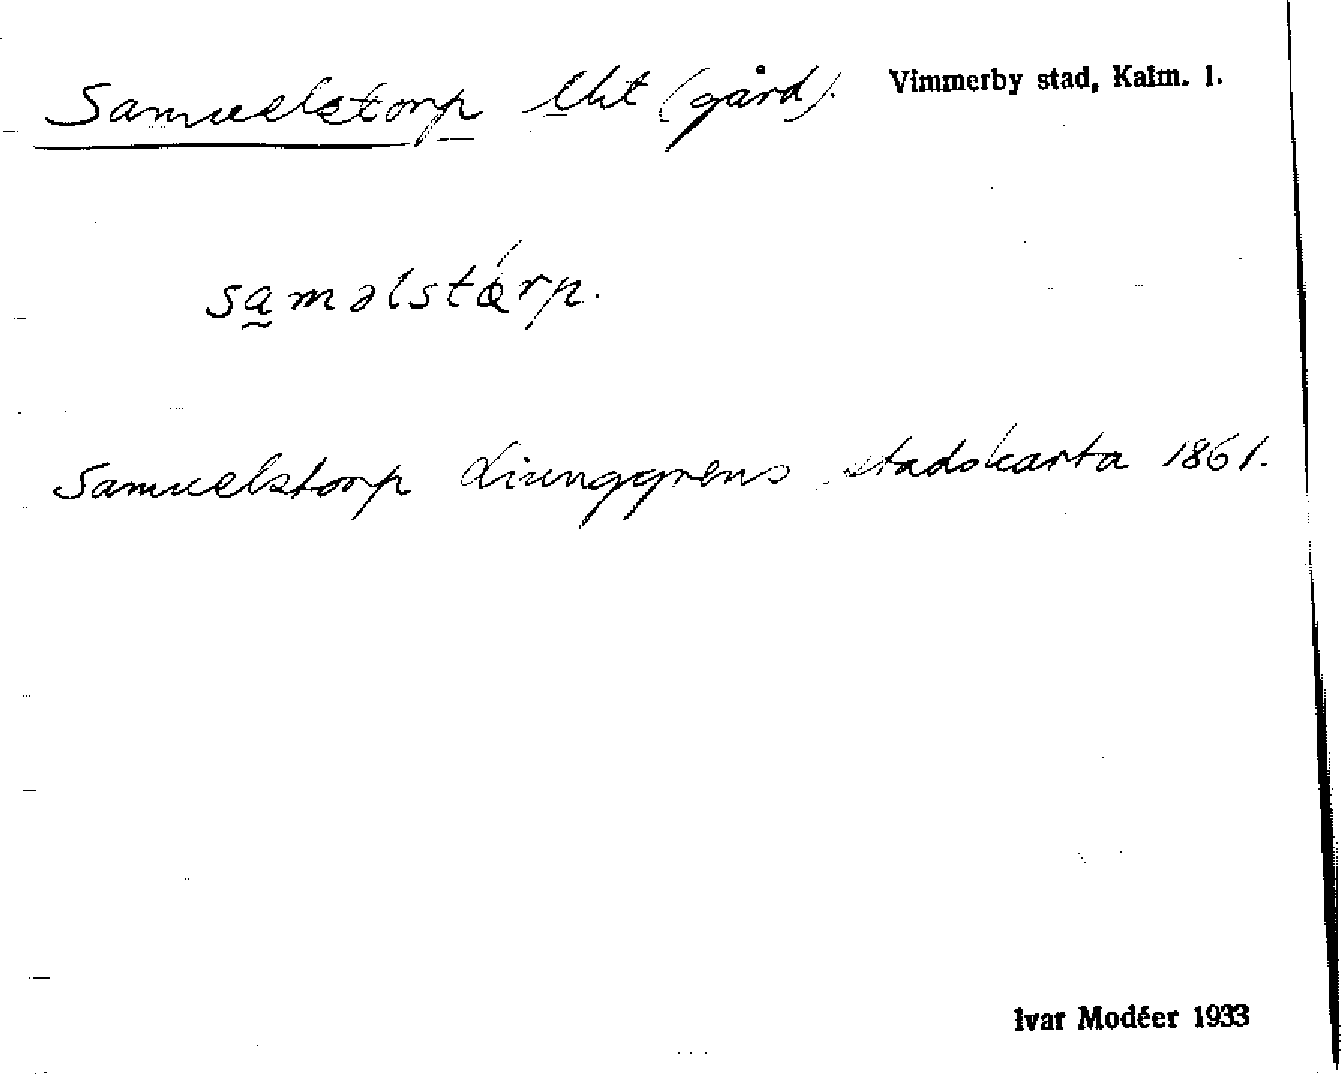 Samuelstorp Uht (gård). Vimmerby stad, Kalm. l.
saməlstórp.
Samuelstorp Liunggrens stadskarta 1861.
Ivar Modéer 1933